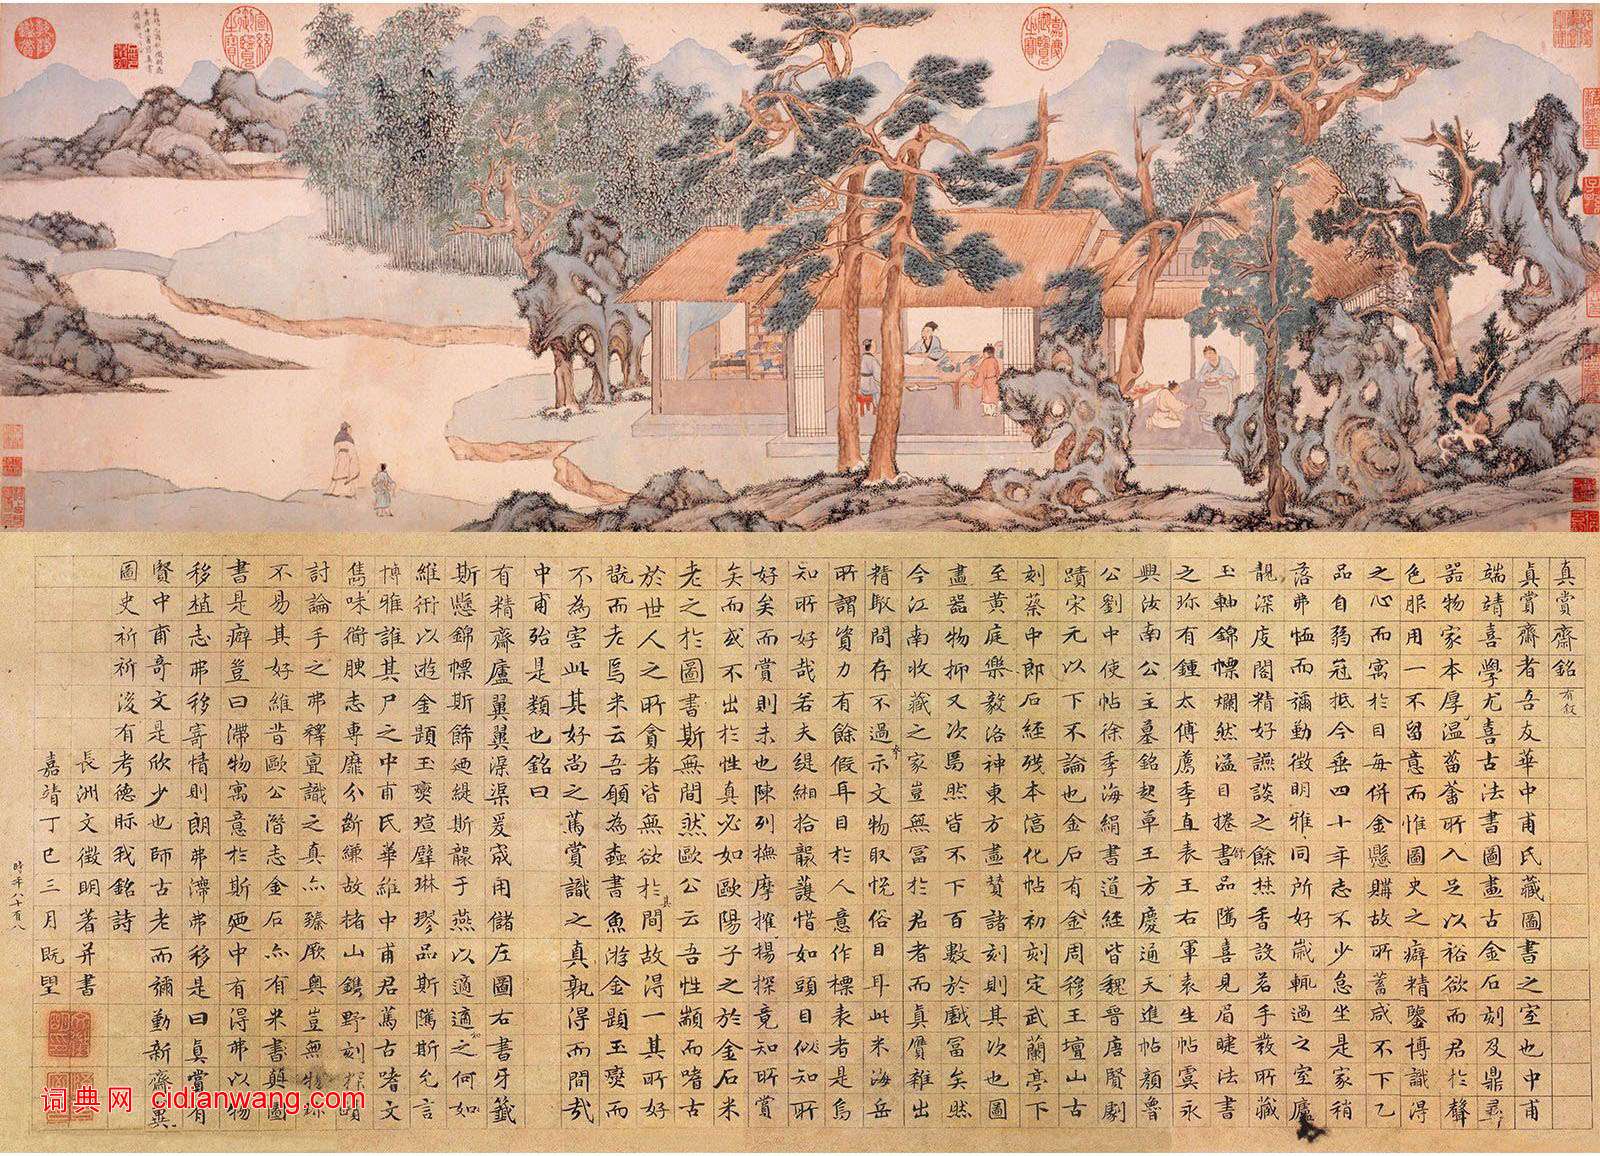 真賞齋銘 有叙
真賞齋者吾友華中甫氏藏圖書之室也中甫
端靖喜學尤喜古法書圖畫古金石刻及鼎彝
器物家本厚溫菑畬所入足以裕欲而君於聲
色服用一不留意而惟圖史之癖精鑒博識得
之心而寓於目每併金懸購故所蓄咸不下乙
品自弱冠抵今垂四十年志不少怠坐是家稍
落弗恤而彌勤徵明雅同所好歲輒過之室廬
靚深庋閣精好讌談之餘焚香設茗手發所藏
玉軸錦幖爛然溢目捲舒品隲喜見眉睫法書
之珍有鍾太傅薦季直表王右軍袁生帖虞永
興汝南公主墓銘起草王方慶通天進帖顏魯
公劉中使帖徐季海絹書道經皆魏晉唐賢劇
蹟宋元以下不論也金石有周穆王壇山古
刻蔡中郎石經殘本淳化帖初刻定武蘭亭下
至黃庭樂毅洛神東方畫贊諸刻則其次也圖
畫器物抑又次焉然皆不下百數於戲富矣然
今江南收藏之家豈無富於君者而真贋雜出
精駁間存不過夸示文物取悅俗目耳此米海岳
所謂資力有餘假耳目於人意作標表者是烏
知所好哉若夫緹緗拾襲護惜如頭目似知所
好矣而賞則未也陳列撫摩搉揚探竟知所賞
矣而或不出於性真必如歐陽子之於金石米
老之於圖書斯無間然歐公云吾性顓而嗜古
於世人之所貪者皆無欲於其間故得一其所好
翫而老焉米云吾願為蠹書魚游金題玉躞而
不為害此其好尚之篤賞識之真孰得而間哉
中甫殆是類也銘曰
有精齋廬翼翼渠渠爰宬用儲左圖右書牙籤
斯懸錦幖斯飾迺緹斯襲于燕以適適之何如
維衎以遊金題玉躞瑄璧琳璆品斯隲斯允言
博雅誰其尸之中甫氏華維中甫君篤古嗜文
雋味銜腴志專靡分斷縑故楮山鐫野刻探頤
討論手之弗釋亶識之真亦臻厥奧豈無物珍
不易其好維昔歐公潛志金石亦有米書顛圖
書是癖豈曰滯物寓意於斯廼中有得弗以物
移植志弗移寄情則朗弗滯弗移是曰真賞有
賢中甫奇文是欣少也師古老而彌勤新齋翼
圖史祈祈後有考德眎我銘詩
長洲文徵明著并書
嘉靖丁巳三月既望
時年八十有八
词典网 cidianwang.com